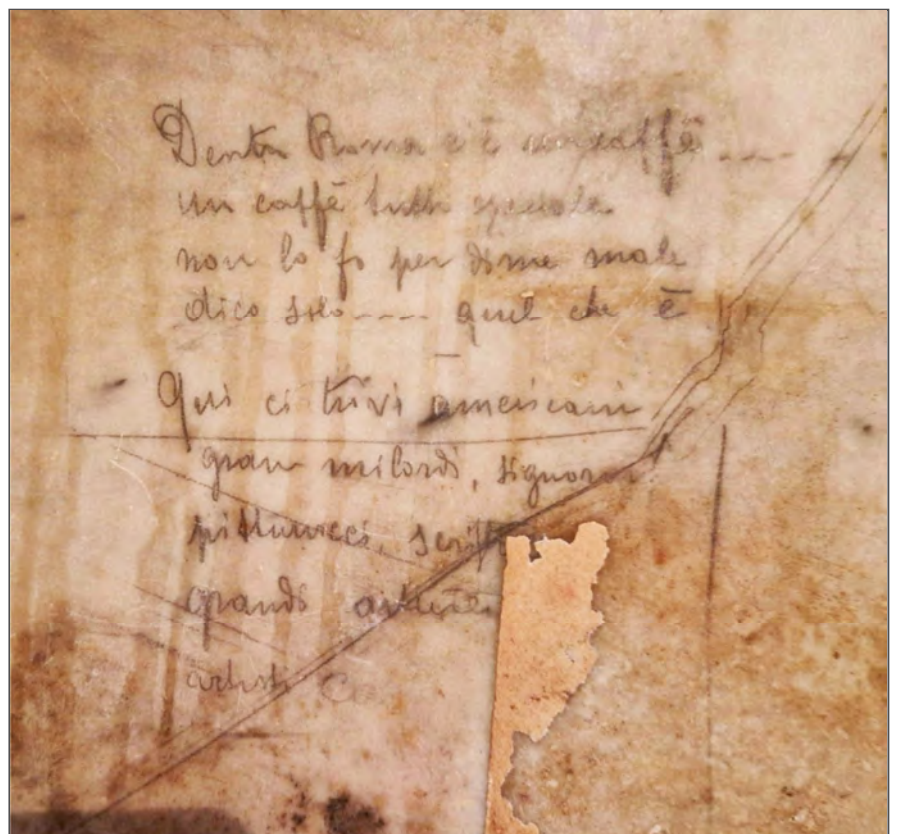 Dentro Roma c'è un caffè....
un caffè tutto speciale
non lo fo per dirne male
dico solo.... quel che è
—
Qui ci trovi americani
gran milordi, signoroni
pittu
grandi
artisti